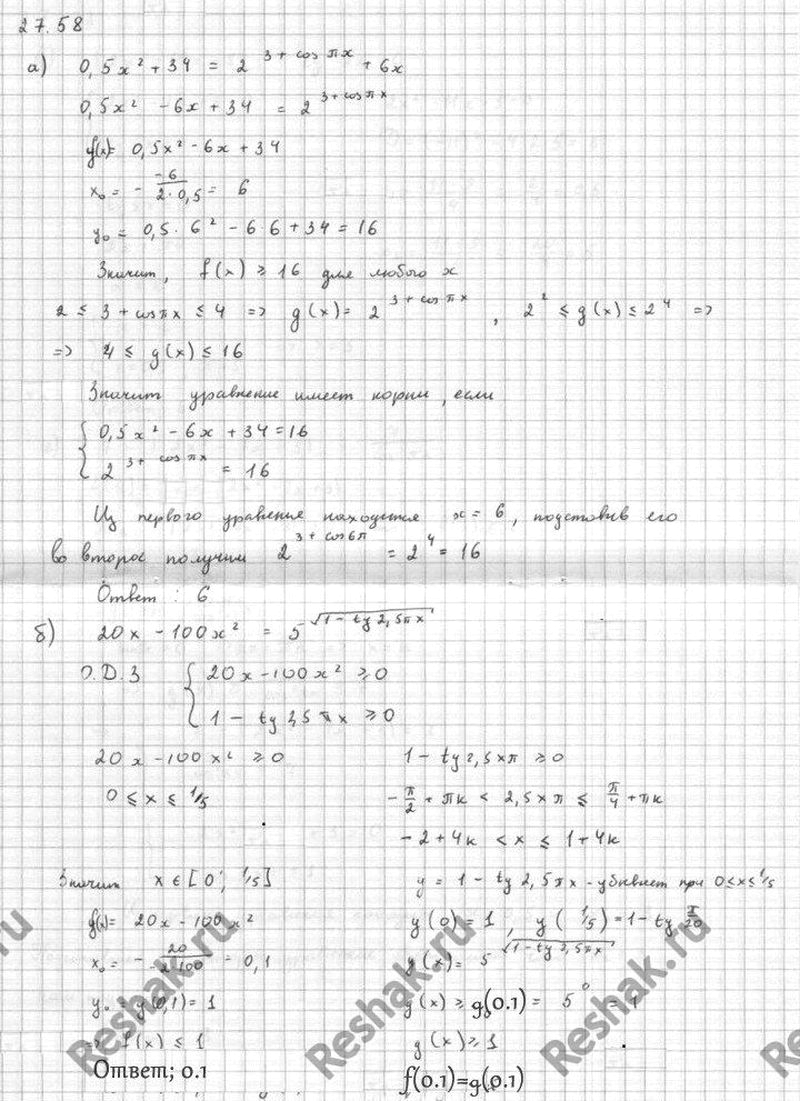 27.58
а) 0,5x² + 34 = 2^(3 + cos πx) + 6x
0,5x² - 6x + 34 = 2^(3 + cos πx)
f(x) = 0,5x² - 6x + 34
x₀ = - -6/(2·0,5) = 6
y₀ = 0,5 · 6² - 6·6 + 34 = 16
Значит, f(x) ≥ 16 для любого x
2 ≤ 3 + cos πx ≤ 4 => g(x) = 2^(3 + cos πx), 2² ≤ g(x) ≤ 2⁴ =>
=> 4 ≤ g(x) ≤ 16
Значит уравнение имеет корни, если
{ 0,5x² - 6x + 34 = 16
2^(3 + cos πx) = 16
Из первого уравнения находится x = 6, подставив его
во второе получим 2^(3 + cos 6π) = 2⁴ = 16
Ответ : 6
б) 20x - 100x² = 5^√(1 - tg 2,5πx)
О.D.З { 20x - 100x² ≥ 0
1 - tg 2,5 πx ≥ 0
20x - 100x² ≥ 0 1 - tg 2,5xπ ≥ 0
0 ≤ x ≤ 1/5 -π/2 + πk < 2,5xπ ≤ π/4 + πk
-2 + 4k < x ≤ 1 + 4k
Значит x ∈ [0; 1/5] y = 1 - tg 2,5πx - убывает при 0≤x≤1/5
f(x) = 20x - 100x² y(0) = 1, y(1/5) = 1 - tg π/20
x₀ = - 20/(-2·100) = 0,1 g(x) = 5^√(1 - tg 2,5πx)
y₀ = y(0,1) = 1 g(x) ≥ g(0.1) = 5⁰ = 1
=> f(x) ≤ 1 g(x) ≥ 1
Ответ; 0.1 f(0.1)=g(0.1)
Reshak.ru
Reshak.ru
Reshak.ru